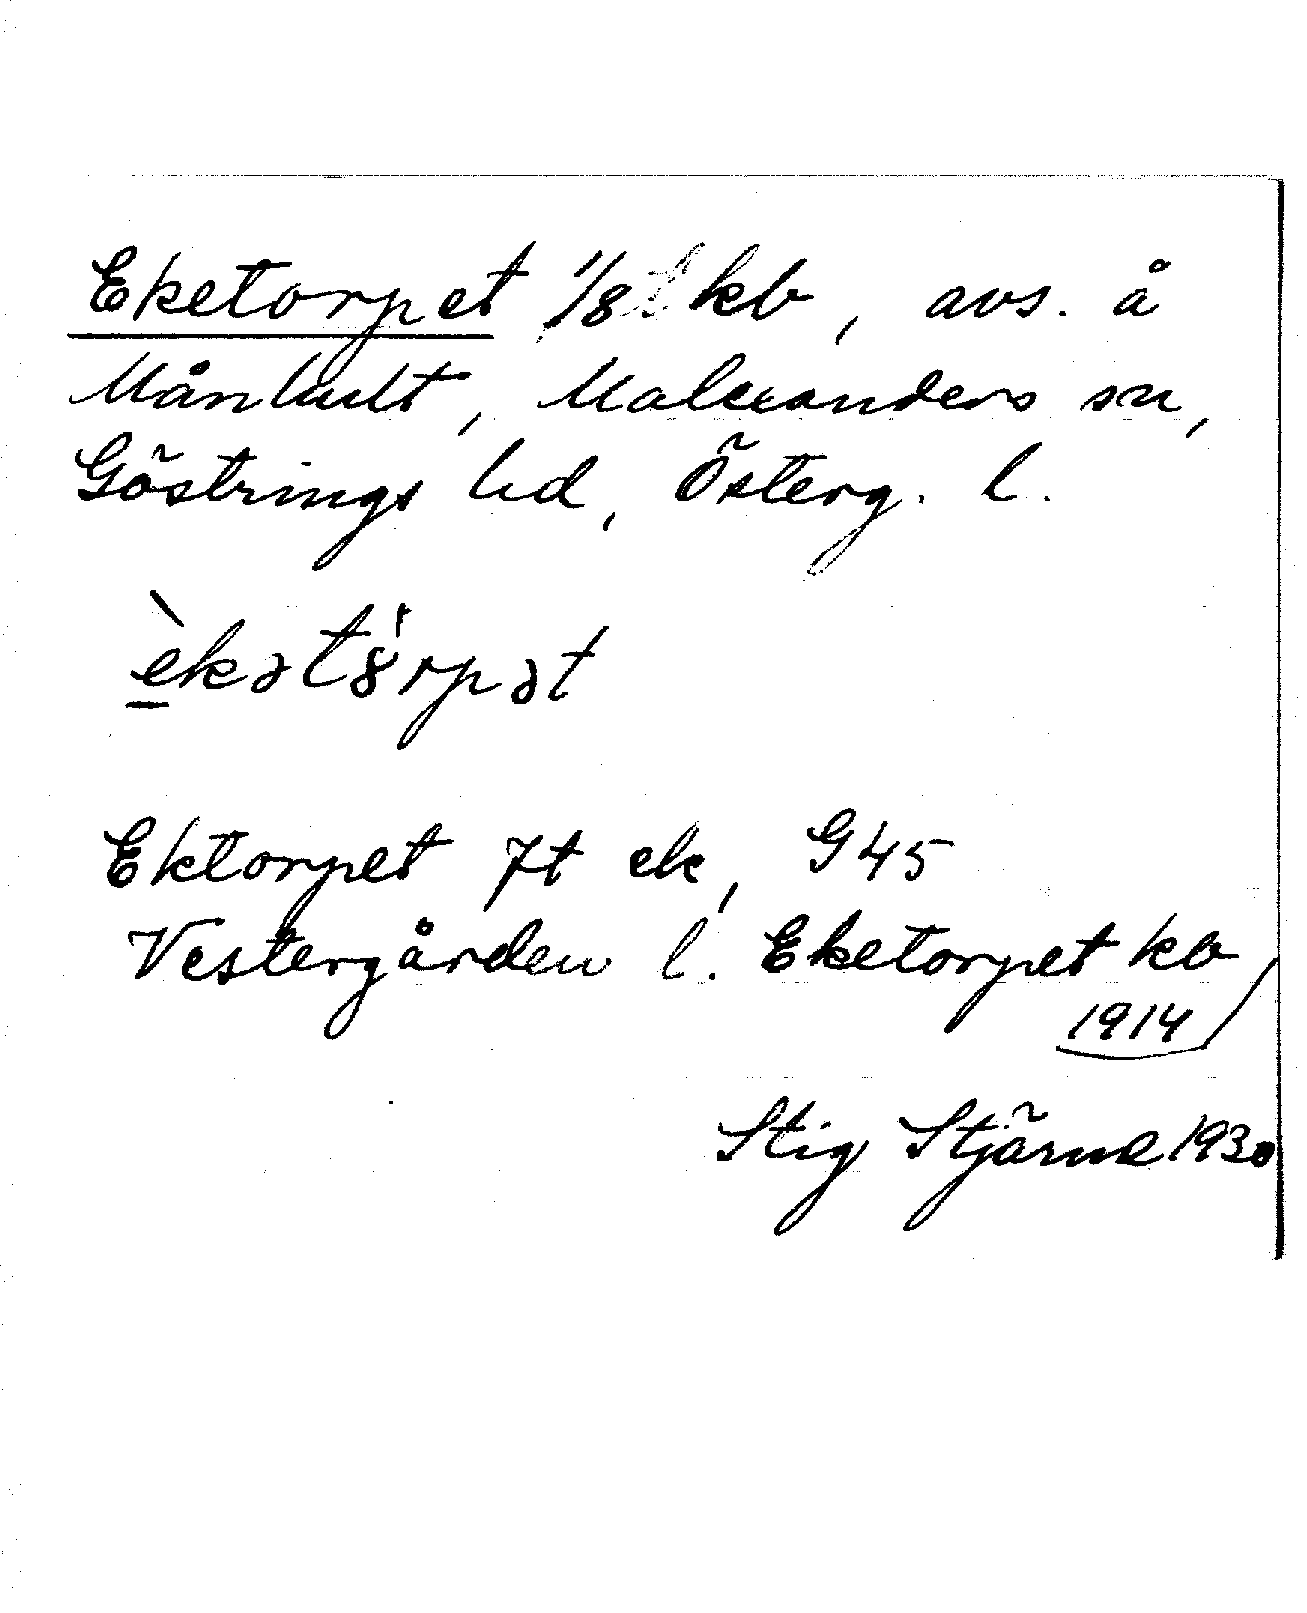 Eketorpet 1/8 kb, avs. å
Månhult, Malexanders sn,
Göstrings hd, Österg. l.
èkətȣ́rpət
Ektorpet 7t ek, G45
Vestergården l. Eketorpet kb
1914
Stig Stjärne 1930